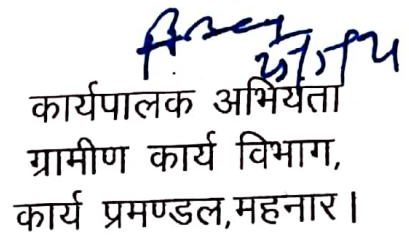 कार्यपालक अभियंता
ग्रामीण कार्य विभाग,
कार्य प्रमण्डल,महनार।